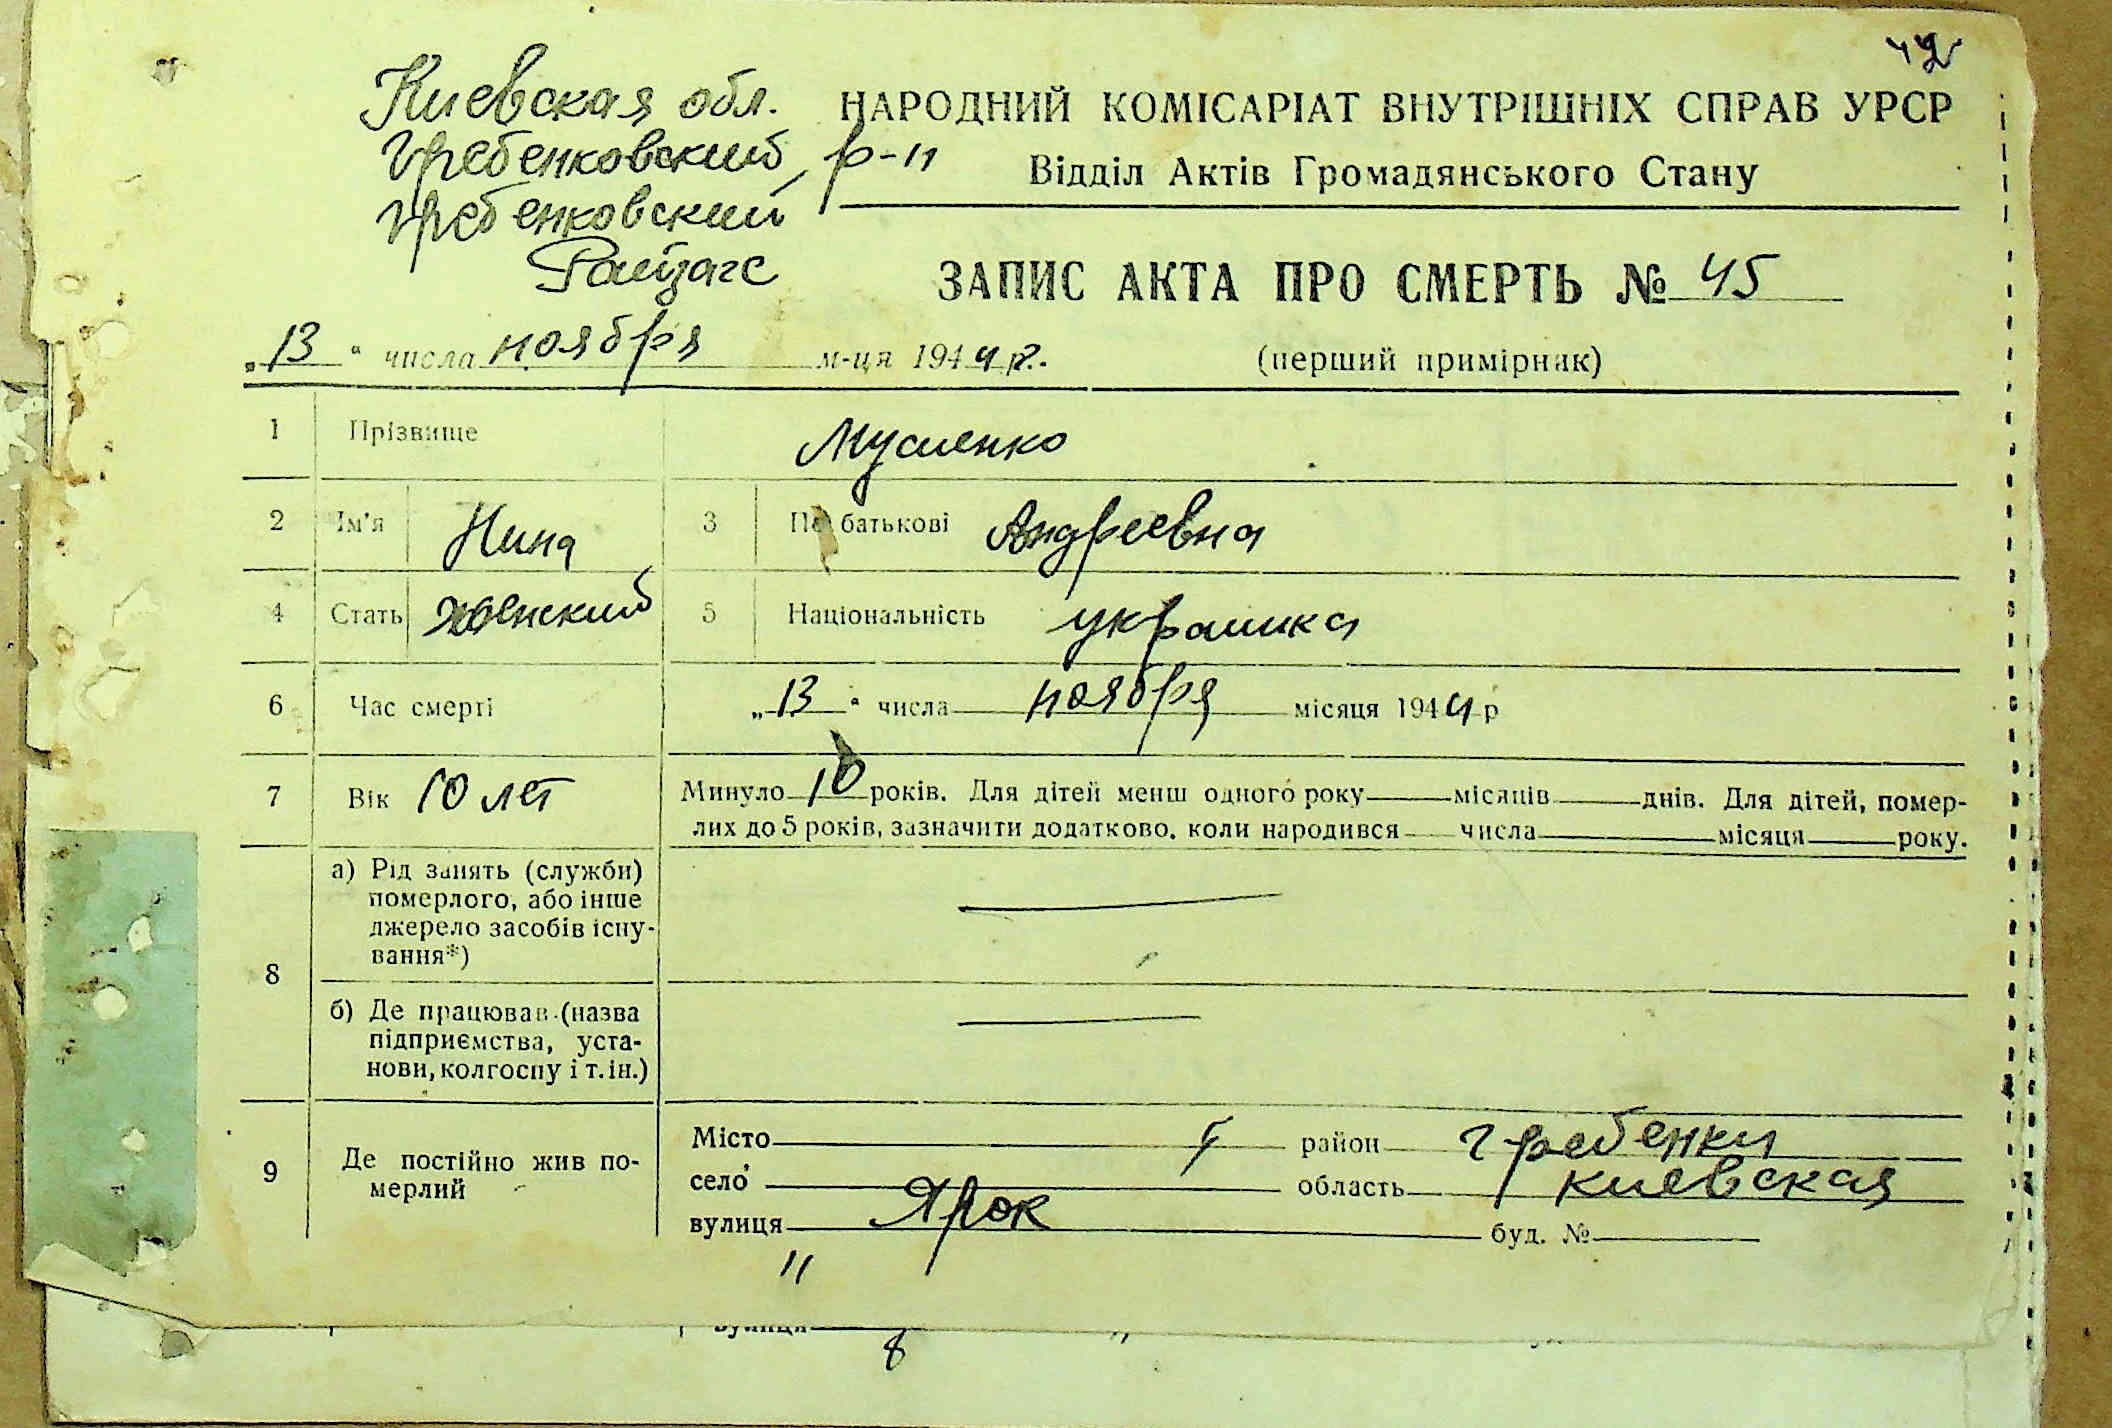 42
Киевская обл.
НАРОДНИЙ КОМІСАРІАТ ВНУТРІШНІХ СПРАВ УРСР
Гребенковский р-н
Відділ Актів Громадянського Стану
Гребенковский
Райзагс
ЗАПИС АКТА ПРО СМЕРТЬ № 45
„13" числа ноября м-ця 1944 р.
(перший примірник)
1 Прізвище Мусиенко
2 Ім'я Нина 3 По батькові Андреевна
4 Стать женский 5 Національність украинка
6 Час смерті „13" числа ноября місяця 1944 р
7 Вік 10 лет Минуло 10 років. Для дітей менш одного року — місяців — днів. Для дітей, помер-
лих до 5 років, зазначити додатково, коли народився — числа — місяця — року.
8 а) Рід занять (служби)
померлого, або інше
джерело засобів існу-
вання*)
—
б) Де працював (назва
підприємства, уста-
нови, колгоспу і т. ін.)
—
9 Де постійно жив по-
мерлий
Місто район Гребенки
село область Киевская
вулиця Ярок буд. №
"
вулиця "
8